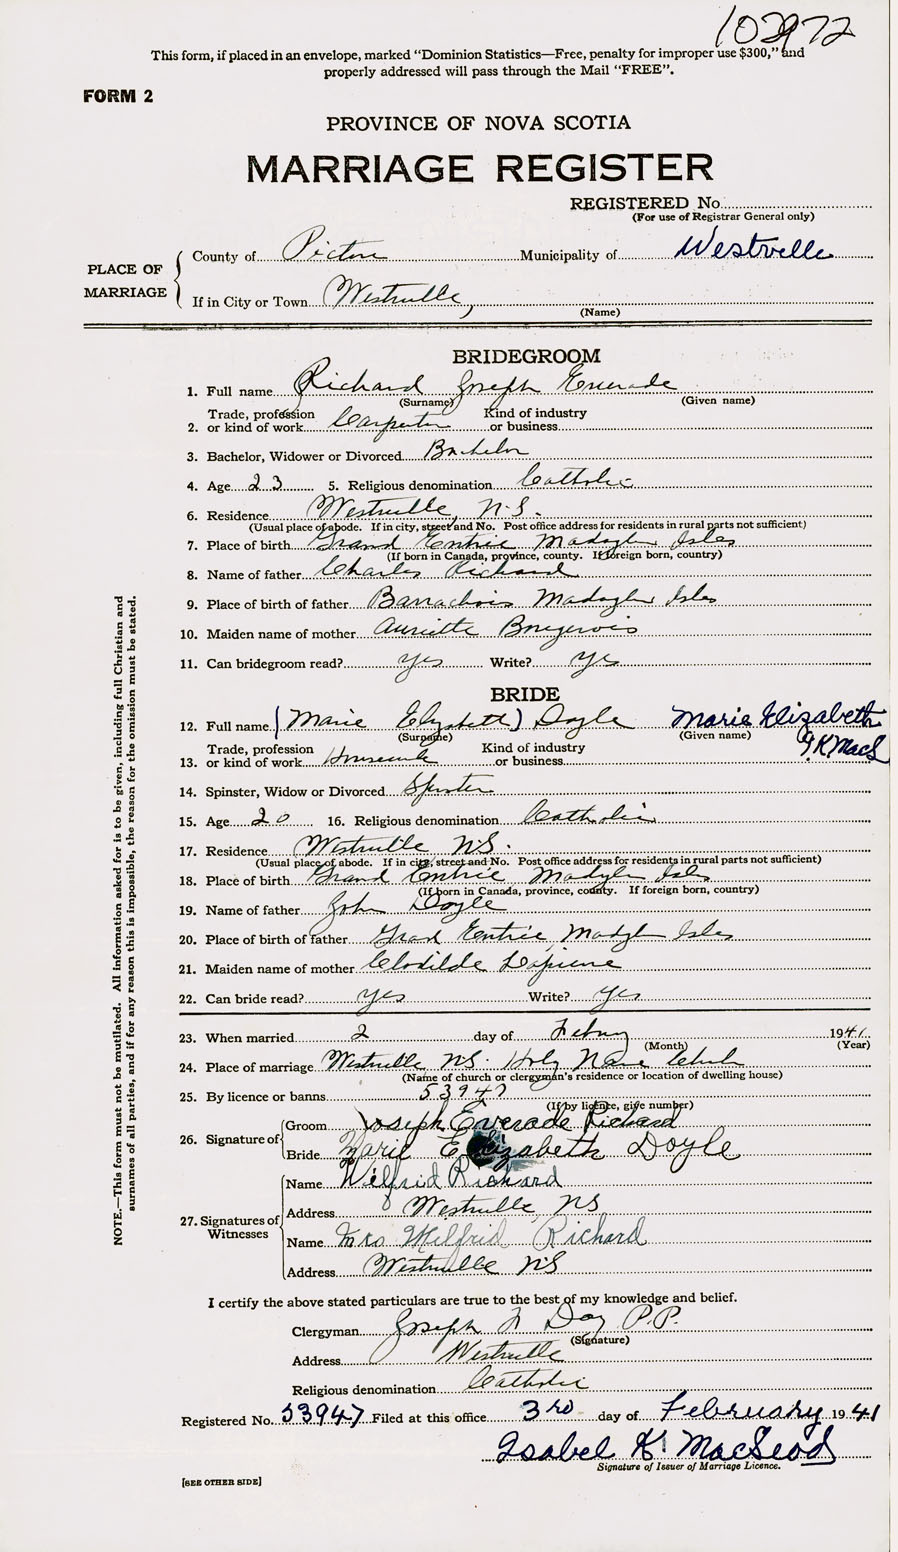 This form, if placed in an envelope, marked "Dominion Statistics—Free, penalty for improper use $300," and
properly addressed will pass through the Mail "FREE".
FORM 2
PROVINCE OF NOVA SCOTIA
MARRIAGE REGISTER
REGISTERED No.
(For use of Registrar General only)
PLACE OF MARRIAGE
County of Pictou Municipality of Westville
If in City or Town Westville,
(Name)
BRIDEGROOM
1. Full name Richard Joseph Everade
(Surname) (Given name)
2. Trade, profession or kind of work Carpenter Kind of industry or business
3. Bachelor, Widower or Divorced Bachelor
4. Age 23 5. Religious denomination Catholic
6. Residence Westville, N.S.
(Usual place of abode. If in city, street and No. Post office address for residents in rural parts not sufficient)
7. Place of birth Grand Entrie Madgln Isles
(If born in Canada, province, county. If foreign born, country)
8. Name of father Charles Richard
9. Place of birth of father Barrachois Madgln Isles
10. Maiden name of mother
11. Can bridegroom read? yes Write? yes
BRIDE
12. Full name (Marie Elyzbeth) Doyle Marie Elizabeth
(Surname) (Given name)
I.K.MacL
13. Trade, profession or kind of work Housework Kind of industry or business
14. Spinster, Widow or Divorced Spinster
15. Age 20 16. Religious denomination Catholic
17. Residence Westville N.S.
(Usual place of abode. If in city, street and No. Post office address for residents in rural parts not sufficient)
18. Place of birth Grand Entrie Madgln Isls
(If born in Canada, province, county. If foreign born, country)
19. Name of father John Doyle
20. Place of birth of father Grad Entrie Madgln Isles
21. Maiden name of mother Clodilde Lapierre
22. Can bride read? yes Write? yes
23. When married 2 day of Febry 1941
(Month) (Year)
24. Place of marriage Westville N.S. Holy Name Church
(Name of church or clergyman's residence or location of dwelling house)
25. By licence or banns 53947
(If by licence, give number)
26. Signature of
Groom Joseph Everade Richard
Bride Marie Elizabeth Doyle
27. Signatures of Witnesses
Name Wilfrid Richard
Address Westville, NS
Name Mrs Wilfrid Richard
Address Westville NS
I certify the above stated particulars are true to the best of my knowledge and belief.
Clergyman Joseph N Day P.P.
(Signature)
Address Westville
Religious denomination Catholic
Registered No. 53947 Filed at this office 3rd day of February 1941
Isabel K. MacLeod
Signature of Issuer of Marriage Licence.
[SEE OTHER SIDE]
NOTE.—This form must not be mutilated. All information asked for is to be given, including full Christian and
surnames of all parties, and if for any reason this is impossible, the reason for the omission must be stated.